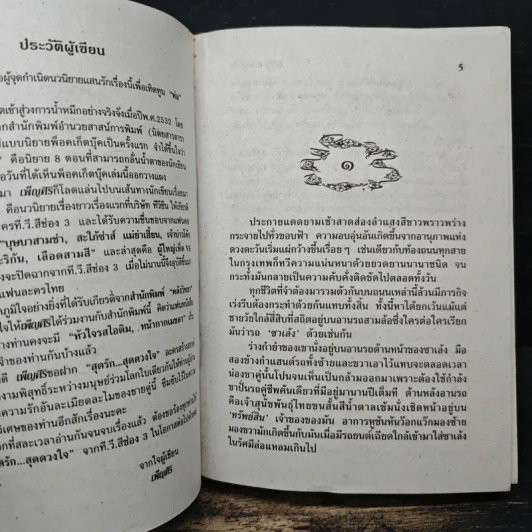 ประวัติผู้เขียน
ผู้จุดกำเนิดนวนิยายแสนรักเรื่องนี้เพื่อเทิดทูน "พ่อ"
เข้าสู่วงการน้ำหมึกอย่างจริงจังเมื่อปีพ.ศ.2532 โดย
กสำนักพิมพ์อำนวยสาส์นการพิมพ์ (นิตยสารดารา
แบบนิยายพ็อคเก็ตบุ๊คเป็นครั้งแรก จำได้ขึ้นใจว่า
" คือนิยาย 8 ตอนที่สามารถกลั่นน้ำตาของนักเขียน
อวันที่ได้เห็นพ็อคเก็ตบุ๊คเล่มนี้ออกวางแผง
มา เพ็ญศิริ ที่โลดแล่นไปบนเส้นทางนักเขียนเรื่อยมา
คือนวนิยายเรื่องยาวเรื่องแรกที่บริษัท ทีวีซีน ให้เกียรติ
ครที่.ที.วี.สีช่อง 3 และได้รับความชื่นชอบจากแฟนละ
"บุษบาสามช่า, สะใภ้ซ่าส์ แม่ย่าเฮี้ยน, เจ้าบ้าน
ะริกัน, เลือดสามสี" และล่าสุดคือ ผู้ใหญ่เห็ด จอ
งจะปิดฉากจากที.วี.สีช่อง 3 เมื่อไม่นานนี้จึงอุบัติขึ้นมา
แฟนละครไทย
ภูมิใจอย่างยิ่งที่ได้รับเกียรติจากสำนักพิมพ์
ให้เพ็ญศิริได้ร่วมงานกับสำนักพิมพ์นี้ คิดว่าแฟนหนังสือ
ท่านคงจะมี "หัวใจรสไอติม, หน้ากากเมขลา" เข้าไป
ของท่านกันบ้างแล้ว
ดี เพ็ญศิริ ขอฝาก "สุดรัก...สุดดวงใจ"
งามพิสุทธิ์ระหว่างมนุษย์ร่วมโลกใบเดียวกันให้ท่านผู้อ่าน
ความรักอันละเมียดละไมของชายคู่นี้ ซึมซับไว้ในความ
พิเศษของท่านอีกสักเรื่องนะคะ
กที่สละเวลาอ่านกันจนจบเรื่องแล้ว ต้องขอร้องทุกท่าน
รัก...สุดดวงใจ" จากที.วี.สีช่อง 3 ในโอกาสต่อไปด้วย
จากใจผู้เขียน
เพ็ญศิริ
๕
๑
ประกายแดดยามเช้าสาดส่องลำแสงสีขาวพราวพร่าง
กระจายไปทั่วขอบฟ้า ความอบอุ่นอันเกิดขึ้นจากอานุภาพแห่ง
ดวงตะวันเริ่มแผ่กว้างขึ้นเรื่อยๆ เช่นเดียวกับท้องถนนทุกสาย
ในกรุงเทพก็ทวีความแน่นหนาด้วยยวดยานนานาชนิด จน
กระทั่งมันกลายเป็นความคับคั่งติดขัดไปตลอดทั้งวัน
ทุกชีวิตที่จำต้องมารวมตัวกันบนถนนเหล่านี้ล้วนมีภารกิจ
เร่งรีบต้องกระทำด้วยกันแทบทั้งสิ้น ทั้งนี้หาได้ยกเว้นแม้แต่
ชายวัยใกล้สี่สิบที่สถิตอยู่บนอานรถสามล้อซึ่งใครต่อใครเรียก
มันว่ารถ 'ซาเล้ง' ด้วยเช่นกัน
ร่างกำยำของเขานั่งอยู่บนอานรถด้านหน้าของซาเล้ง มือ
สองข้างกำแฮนด์รถทั้งซ้ายและขวาเอาไว้แทบจะตลอดเวลา
น่องขาคู่นั้นโปนจนเห็นเป็นกล้ามออกมาเพราะต้องใช้กำลัง
ขาปั่นรถคู่ชีพคันเดียวที่มีอยู่มานานปีเต็มที ด้านหลังอานรถ
คือเจ้าสุนัขพันธุ์ไทยขนสั้นสีน้ำตาลเข้มนั่งเชิดหน้าอยู่บน
'ทรัพย์สิน' เจ้าของของมัน อาการหูชันหันว๊อกแว๊กมองซ้าย
มองขวามักเกิดขึ้นกับมันเมื่อมีรถยนต์เฉียดใกล้เข้ามาใส่ซาเล้ง
ในรัศมีล่อแหลมเกินไป